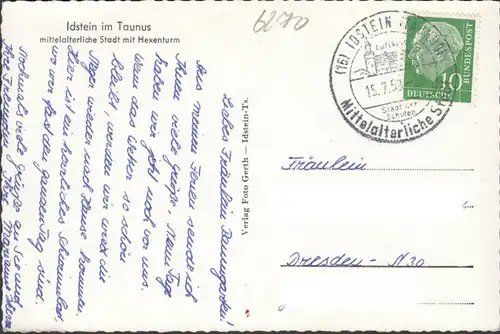 Idstein im Taunus
mittelalterliche Stadt mit Hexenturm
6270
(16) IDSTEIN
15.7.58
Stadt der
Schulen
Mittelalterliche St
10
DEUTSCHE
BUNDESPOST
Verlag Foto Gerth — Idstein-Ts.
Liebes Fräulein Baumgarten!
Aus meinen Ferien sende ich
Ihnen viele Grüße. Neun Tage
haben wir jetzt noch vor uns.
Wenn das Wetter so schön
bleibt, werden wir
Tage wieder nach Hause kommen.
Hier ist ein herrliches Schwimmbad,
wo wir fast den ganzen Tag sind.
Nochmals viele Grüße an Sie und
Ihre
Fräulein
Dresden - N 30